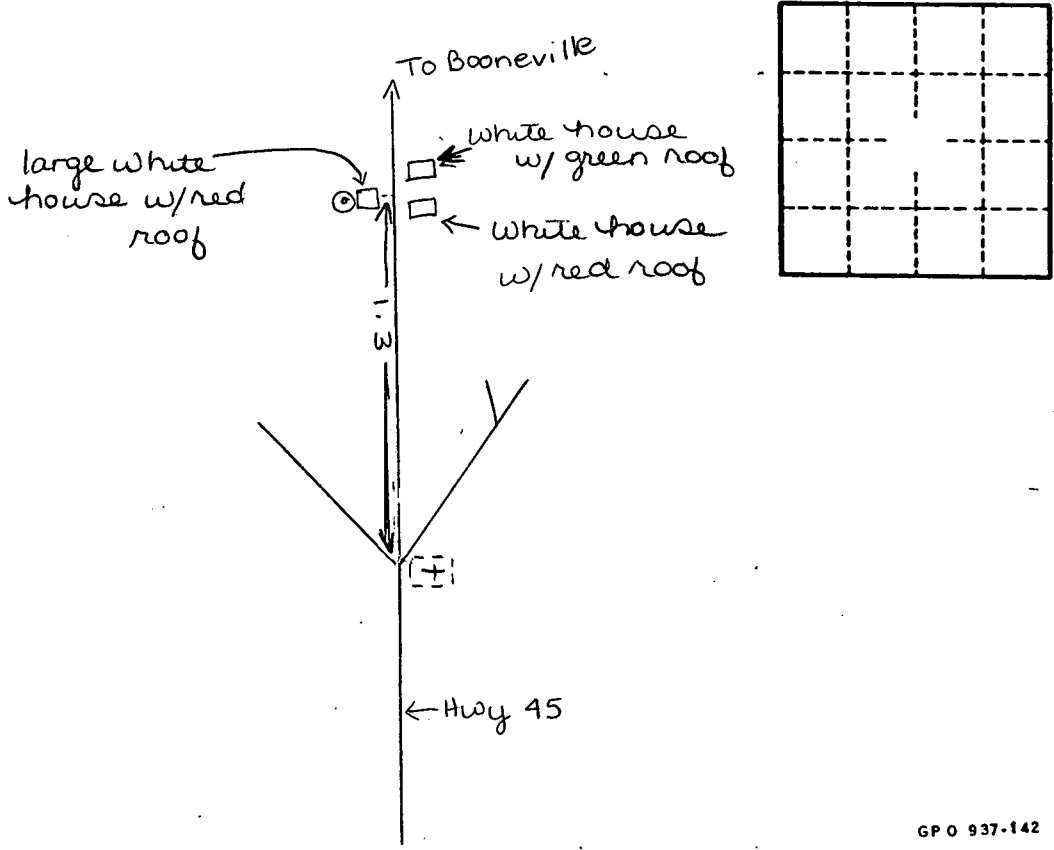 To Booneville
white house
w/ green roof
large white
house w/red
roof
white house
w/ red roof
1.3
Hwy 45
GPO 937-142